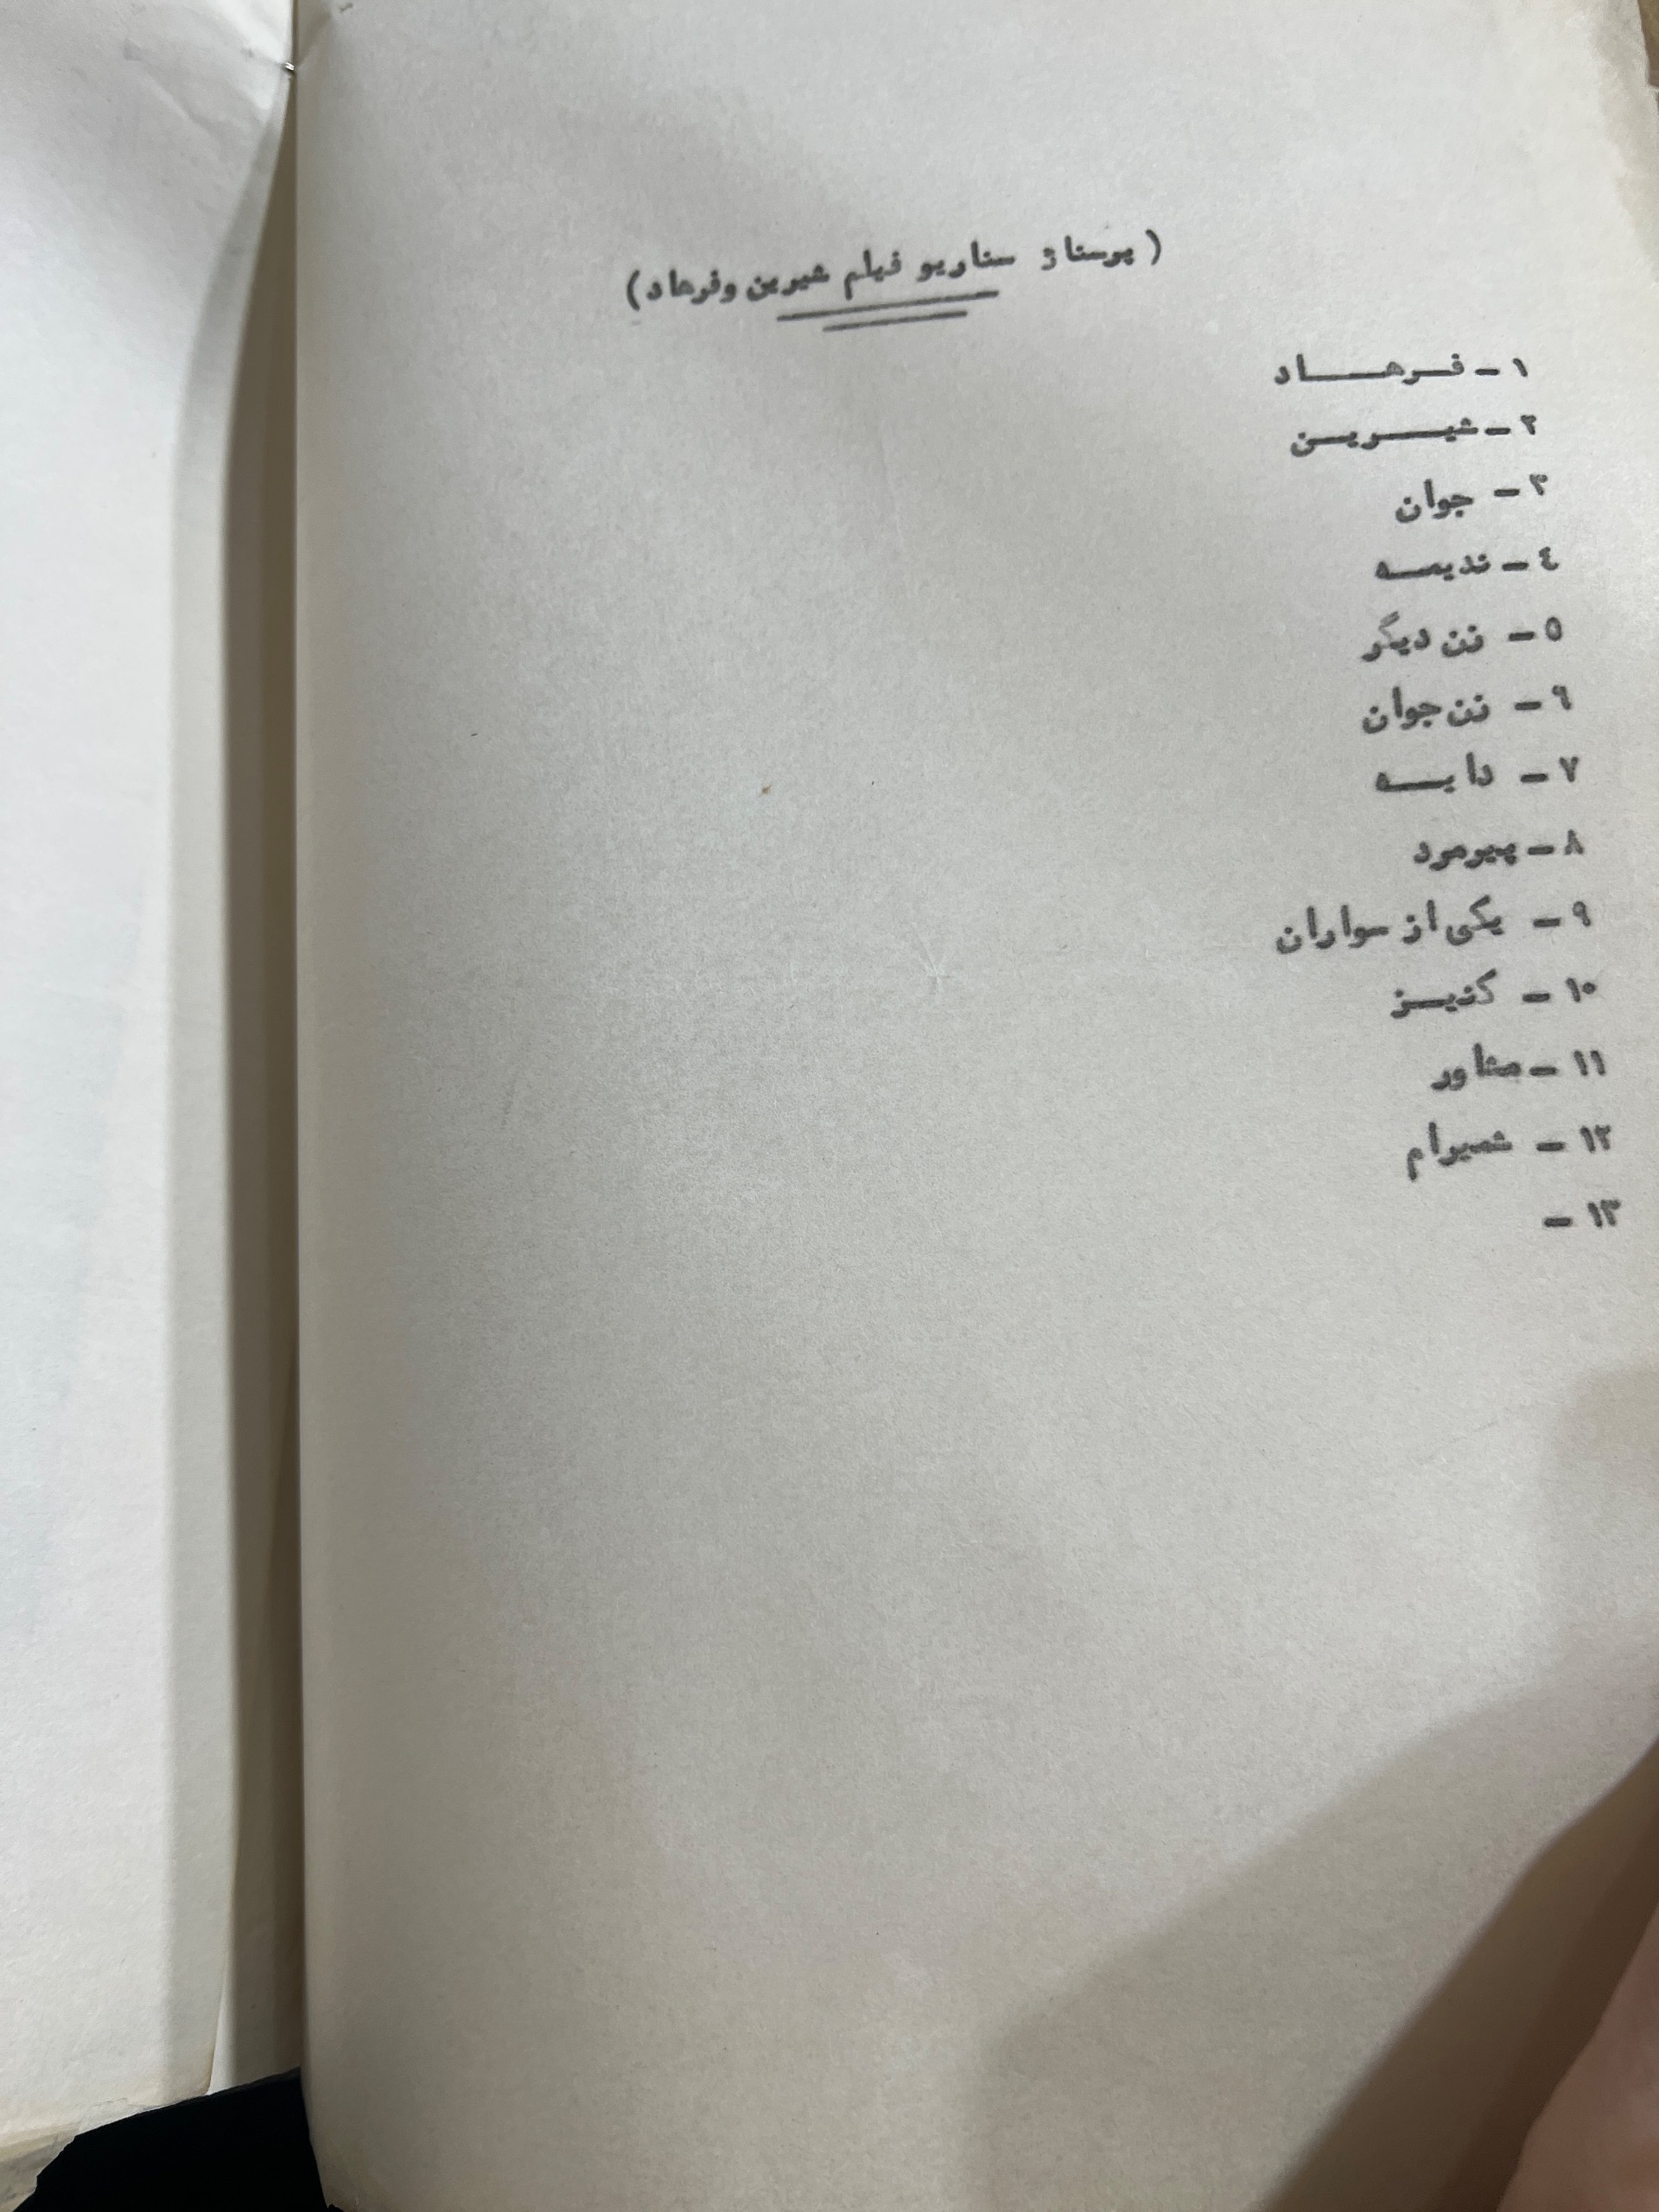 ( پرسناژ سناریو فیلم شیرین وفرهاد)
۱ - فـرهـــاد
۲ - شیـــریـن
۳ - جوان
٤ - ندیمـه
۵ - زن دیگر
٦ - زن جوان
۷ - دایــه
۸ - پیرمرد
۹ - یکی از سواران
۱۰ - کنیـز
۱۱ - مشاور
۱۲ - شمیرام
۱۳ -